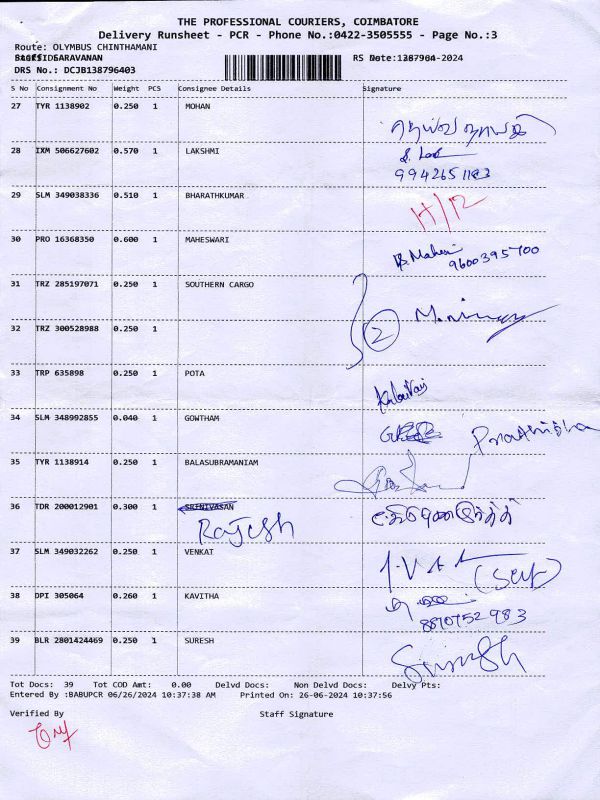 THE PROFESSIONAL COURIERS, COIMBATORE
Delivery Runsheet - PCR - Phone No.:0422-3505555 - Page No.:3
Route: OLYMBUS CHINTHAMANI
SARAVANAN
RS Date: -2024
DRS No.: DCJB138796403
S No Consignment No Weight PCS Consignee Details Signature
27 TYR 1138902 0.250 1 MOHAN
28 IXM 506627602 0.570 1 LAKSHMI
9942651183
29 SLM 349038336 0.510 1 BHARATHKUMAR
30 PRO 16368350 0.600 1 MAHESWARI
9600395700
31 TRZ 285197071 0.250 1 SOUTHERN CARGO
2
32 TRZ 300528988 0.250 1
33 TRP 635898 0.250 1 POTA
34 SLM 348992855 0.040 1 GOWTHAM
35 TYR 1138914 0.250 1 BALASUBRAMANIAM
36 TDR 200012901 0.300 1 SRINIVASAN
Rajesh
37 SLM 349032262 0.250 1 VENKAT
(Self)
38 DPI 305064 0.260 1 KAVITHA
8870752983
39 BLR 2801424469 0.250 1 SURESH
Tot Docs: 39 Tot COD Amt: 0.00 Delvd Docs: Non Delvd Docs: Delvy Pts:
Entered By :BABUPCR 06/26/2024 10:37:38 AM Printed On: 26-06-2024 10:37:56
Verified By Staff Signature